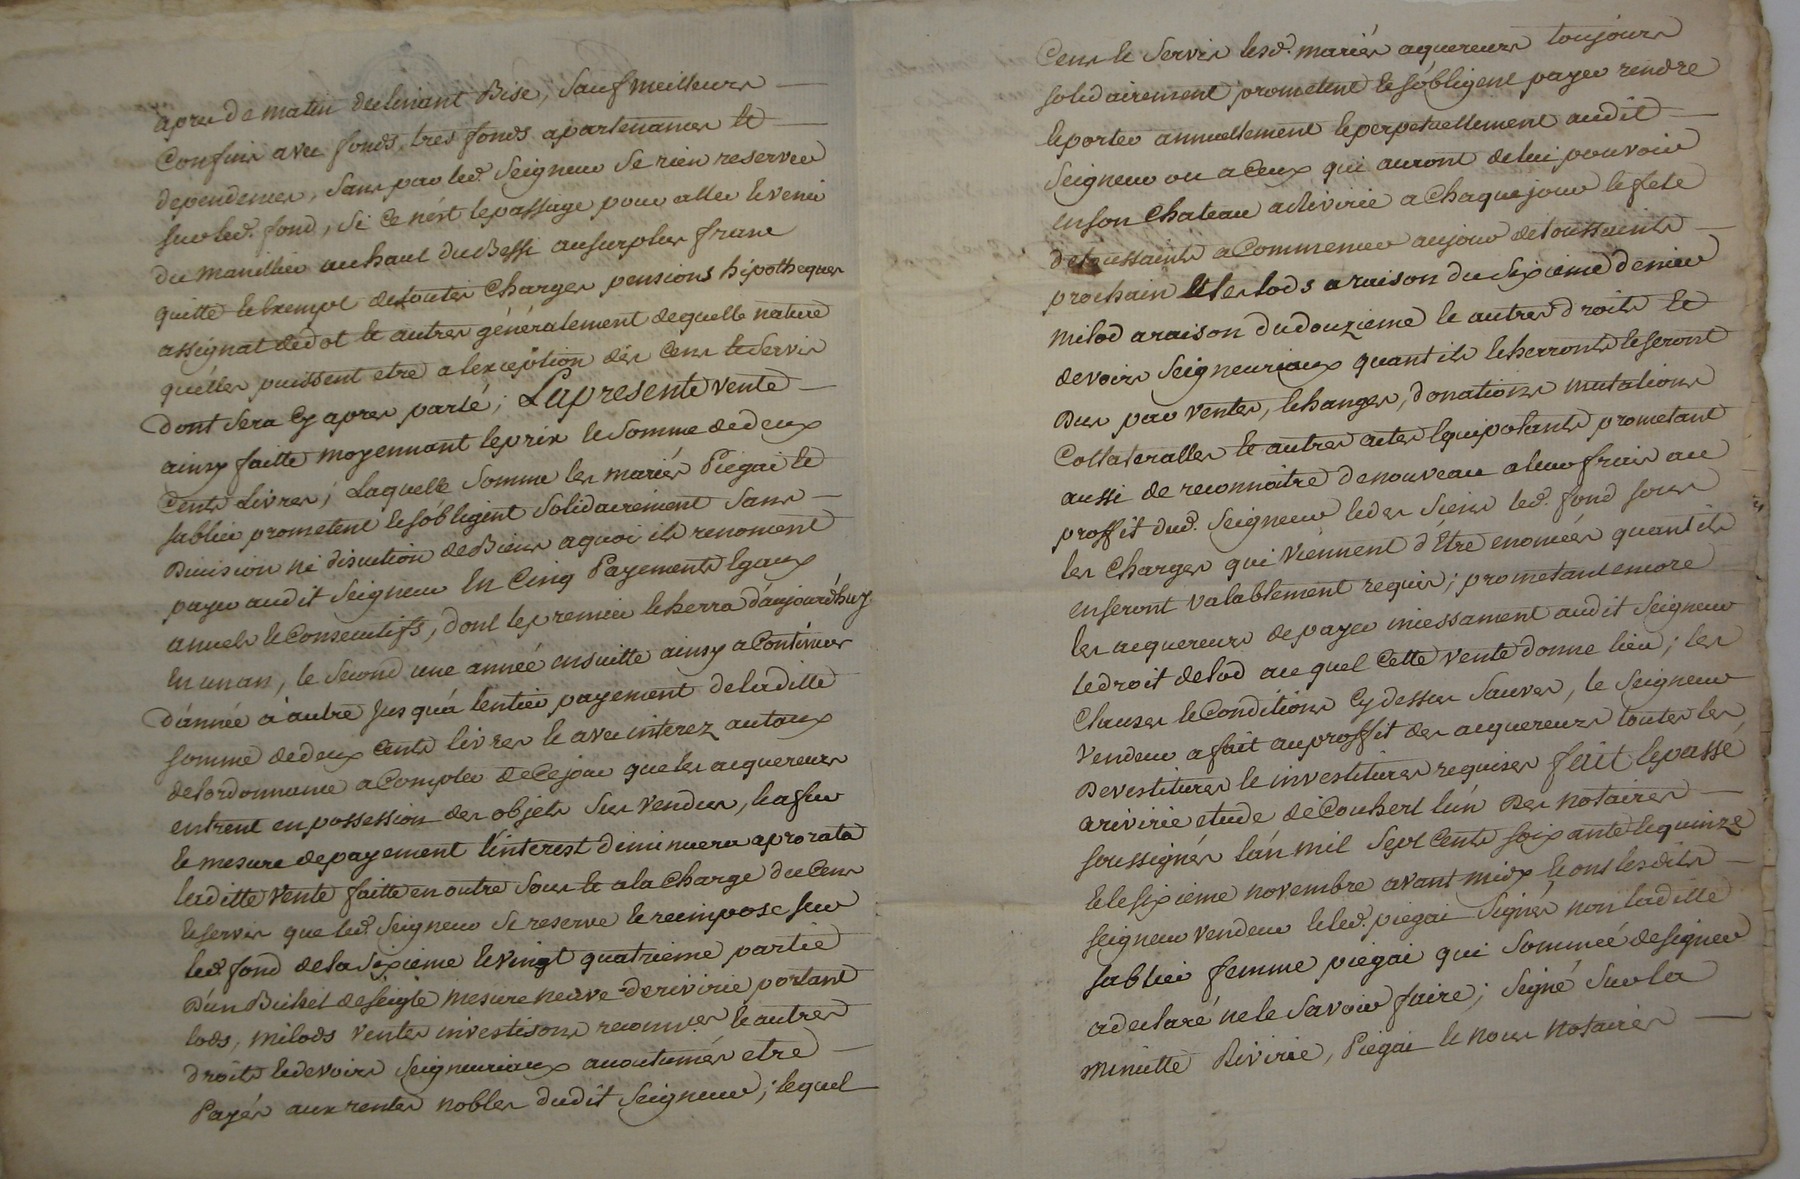 apres de matin declinant Bise, sauf meilleurs
Confins avec fonds, tres fonds apartenances et
dependences, sans par led. Seigneur se rien reserver
sur led. fond, si ce n'est le passage pour aller et venir
du manillier au haut du Bessi au surplus franc
quitte et exempt de toutes Charges pensions hipotheques
assignat de dot et autres généralement de quelle nature
qu'elles puissent etre a lexception des Cens et servis
dont sera cy apres parlé; La presente vente
ainsy faitte moyennant le prix et somme de deux
Cents Livres; Laquelle Somme les mariés Piégai et
sablier prometent et s'obligent solidairement sans
Division ni discution de Biens aquoi ils renoncent
payer audit Seigneur En Cinq Payements Egaux
annuels et Consecutifs, dont le premier echerra d'aujourd'huy
En un an, le Second une année ensuitte ainsy a Continuer
d'année à autre jus qu'à l'entier payement de laditte
somme de deux Cents livres et avec interez au taux
de l'ordonnance a Compter de Ce jour que les acquereurs
entrent en possession des objets Sus vendus, et a fur
et mesure de payement l'interest diminuera a prorata
laditte vente faitte en outre Sous et a la Charge du Cens
et servis que led. Seigneur se reserve et reimpose sur
led. fond de la sixieme et vingt quatrieme partie
D'un Bichet de seigle mesure neuve de rivirie portant
lods, milods ventes investisons reconnces et autres
droits et devoirs Seigneuriaux acoutumés etre
Payés aux rentes nobles dudit Seigneur; lequel
Cens et Servis lesd. mariés aquereurs toujours
solidairement prometent et s'obligent payer rendre
et porter annuellement et perpetuellement audit
Seigneur ou a Ceux qui auront de lui pouvoir
en son Chateau a rivirie a Chaque jour et fete
de toussaints a Commencer au jour de toussaints
prochain et les lods a raison du Sixieme denier
milod a raison du douzieme et autres droits et
devoirs Seigneuriaux quant ils echerronts et seront
Dus par ventes, echanges, donations mutations
Collateralles et autres actes equipolants prometant
aussi de reconnoitre de nouveau a leur frais au
proffit dud. Seigneur et des siens led. fond sous
les Charges qui viennent d'Etre enoncées quant ils
en seront valablement requis; prometant encore
les acquereurs de payer incessament audit Seigneur
le droit de lod au quel Cette vente donne lieu; les
Clauses et Conditions Cy dessus Sauves, le Seigneur
vendeur a fait au proffit des acquereurs toutes les
Devestitures et investitures requises fait et passé
a rivirie etude de Couhert l'un Des notaires
soussignés l'an mil Sept Cents soixante et quinze
et le sixieme novembre avant midy et ont lesdits
seigneur vendeur et led. piegai Signés non laditte
sablier femme piegai qui Sommée de signer
a declaré ne le Savoir faire; Signé Sur la
minutte Rivirie, Piégai et nous notaires